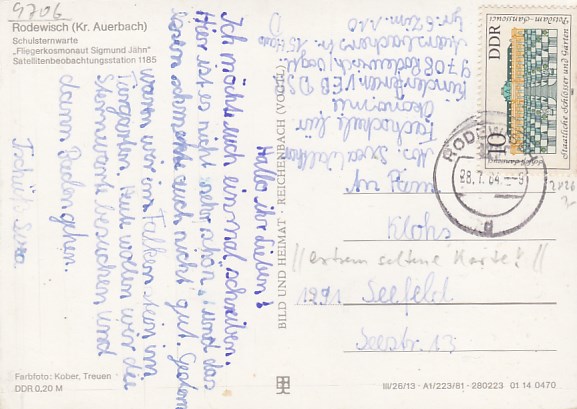 9706
Rodewisch (Kr. Auerbach)
Schulsternwarte
„Fliegerkosmonaut Sigmund Jähn"
Satellitenbeobachtungsstation 1185
Hallo ihr Lieben!
Ich möchte euch einmal schreiben.
Hier ist es nicht sehr schön, und das
Essen schmeckt auch nicht gut. Gestern
waren wir in Falkenstein im
Tiergarten. Heut wollen wir die
Sternwarte besuchen und
dann Baden gehen.
Tschüß Svea
BILD UND HEIMAT · REICHENBACH (VOGTL)
Fachschule für
Ökonomie
9708 Rodewisch/Vogtl.
DDR
10
Staatliche Schlösser und Gärten
Potsdam-Sanssouci
RODEWISCH
28.7.84
d
An Fam.
Klohs
//extrem seltene Karte!//
1291 Seefeld
Seestr. 13
Farbfoto: Kober, Treuen
DDR 0,20 M
III/26/13 · A1/223/81 · 280223 01 14 0470